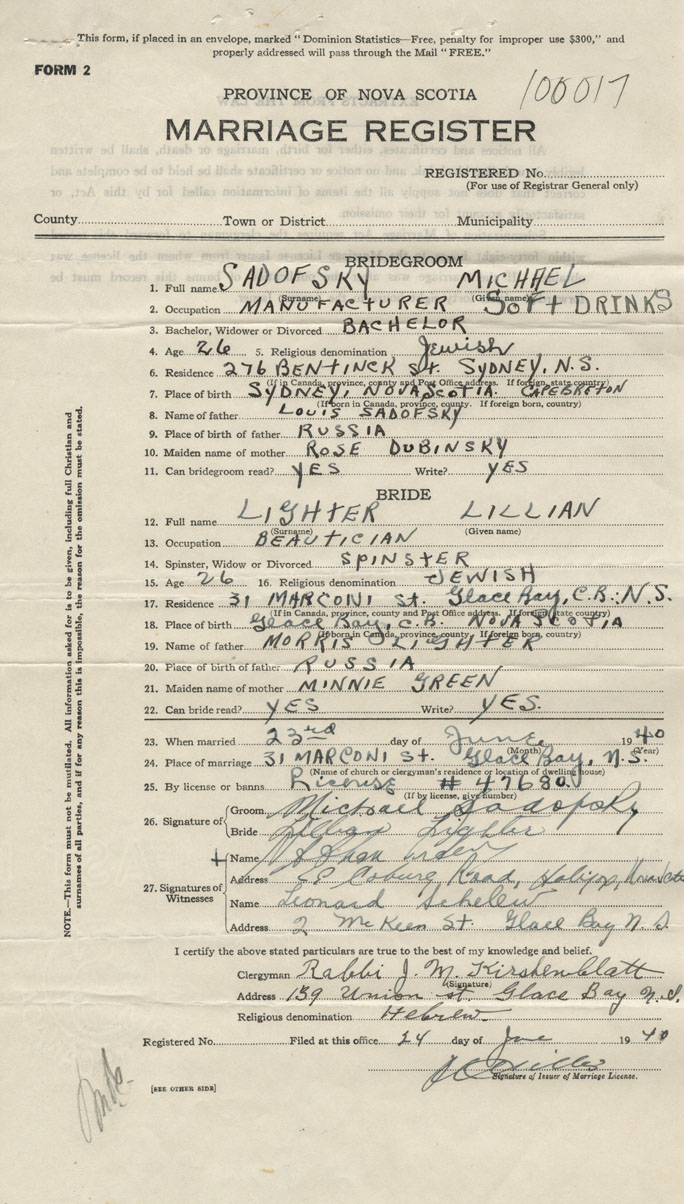 This form, if placed in an envelope, marked "Dominion Statistics—Free, penalty for improper use $300," and
properly addressed will pass through the Mail "FREE."
FORM 2
100017
PROVINCE OF NOVA SCOTIA
MARRIAGE REGISTER
REGISTERED No.
(For use of Registrar General only)
County Town or District Municipality
BRIDEGROOM
1. Full name SADOFSKY MICHAEL
(Surname) (Given name)
2. Occupation MANUFACTURER SOFT DRINKS
3. Bachelor, Widower or Divorced BACHELOR
4. Age 26 5. Religious denomination Jewish
6. Residence 276 BENTINCK St. SYDNEY, N.S.
(If in Canada, province, county and Post Office address. If foreign, state country)
7. Place of birth SYDNEY, NOVA SCOTIA. CAPEBRETON
(If born in Canada, province, county. If foreign born, country)
8. Name of father LOUIS SADOFSKY
9. Place of birth of father RUSSIA
10. Maiden name of mother ROSE DUBINSKY
11. Can bridegroom read? YES Write? YES
BRIDE
12. Full name LIGHTER LILLIAN
(Surname) (Given name)
13. Occupation BEAUTICIAN
14. Spinster, Widow or Divorced SPINSTER
15. Age 26 16. Religious denomination JEWISH
17. Residence 31 MARCONI St. Glace Bay, C.B. N.S.
(If in Canada, province, county and Post Office address. If foreign, state country)
18. Place of birth Glace Bay, C.B. NOVA SCOTIA
(If born in Canada, province, county. If foreign born, country)
19. Name of father MORRIS LIGHTER
20. Place of birth of father RUSSIA
21. Maiden name of mother MINNIE GREEN
22. Can bride read? YES Write? YES.
23. When married 23rd day of June 1940
(Month) (Year)
24. Place of marriage 31 MARCONI St. Glace Bay, N.S.
(Name of church or clergyman's residence or location of dwelling house)
25. By license or banns License # 47680
(If by license, give number)
26. Signature of Groom Michael Sadofsky
Bride Lillian Lighter
27. Signatures of Witnesses
Name
Address Coburg Road, Halifax, Nova Scotia
Name Leonard
Address 2 McKeen St. Glace Bay N.S.
I certify the above stated particulars are true to the best of my knowledge and belief.
Clergyman Rabbi J. M. Kirshenblatt
(Signature)
Address 159 Union st. Glace Bay N.S.
Religious denomination Hebrew
Registered No. Filed at this office 24 day of June 1940
Signature of Issuer of Marriage License.
[SEE OTHER SIDE]
NOTE.—This form must not be mutilated. All information asked for is to be given, including full Christian and
surnames of all parties, and if for any reason this is impossible, the reason for the omission must be stated.